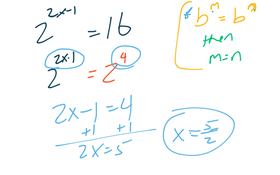 2^{2x-1} = 16
2^{2x-1} = 2^{4}
2x-1=4
+1 +1
2x=5
x=5/2
* b^m = b^n
then
m=n